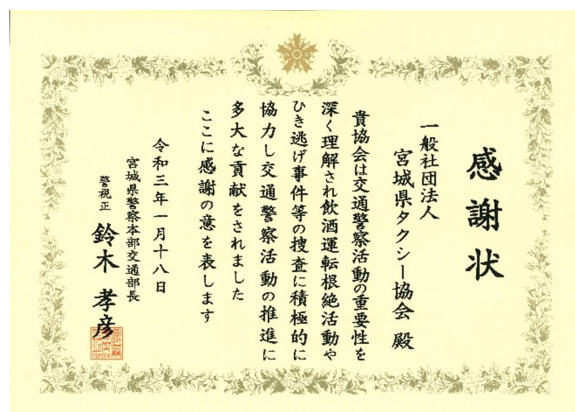 感謝状
一般社団法人
宮城県タクシー協会 殿
貴協会は交通警察活動の重要性を
深く理解され飲酒運転根絶活動や
ひき逃げ事件等の捜査に積極的に
協力し交通警察活動の推進に
多大な貢献をされました
ここに感謝の意を表します
令和三年一月十八日
宮城県警察本部交通部長
警視正 鈴木孝彦